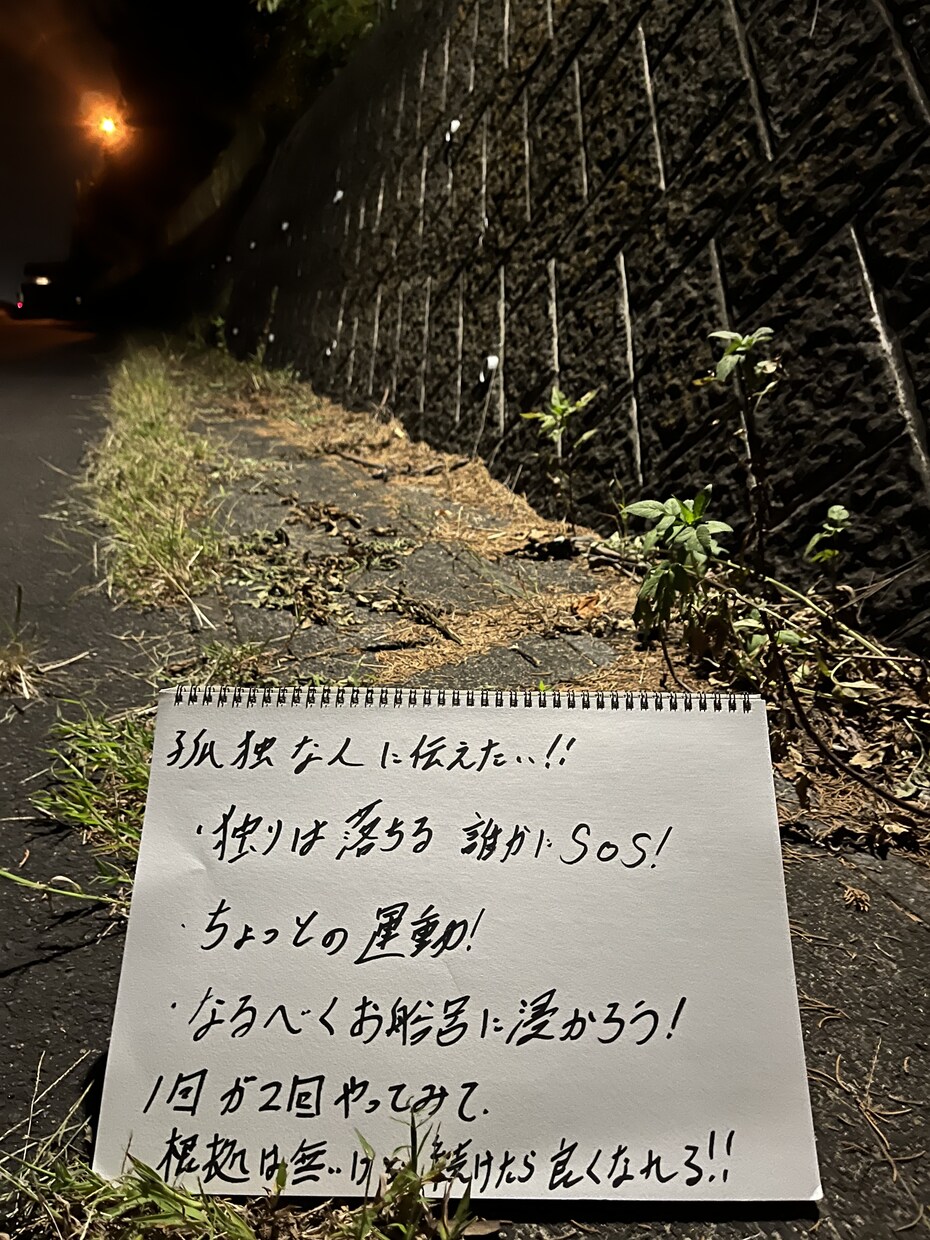 孤独な人に伝えたい!!
・独りは落ちる 誰かにSOS!
・ちょっとの運動!
・なるべくお船呂に浸かろう!
1回が2回やってみて.
根拠は無いけど続けたら良くなれる!!